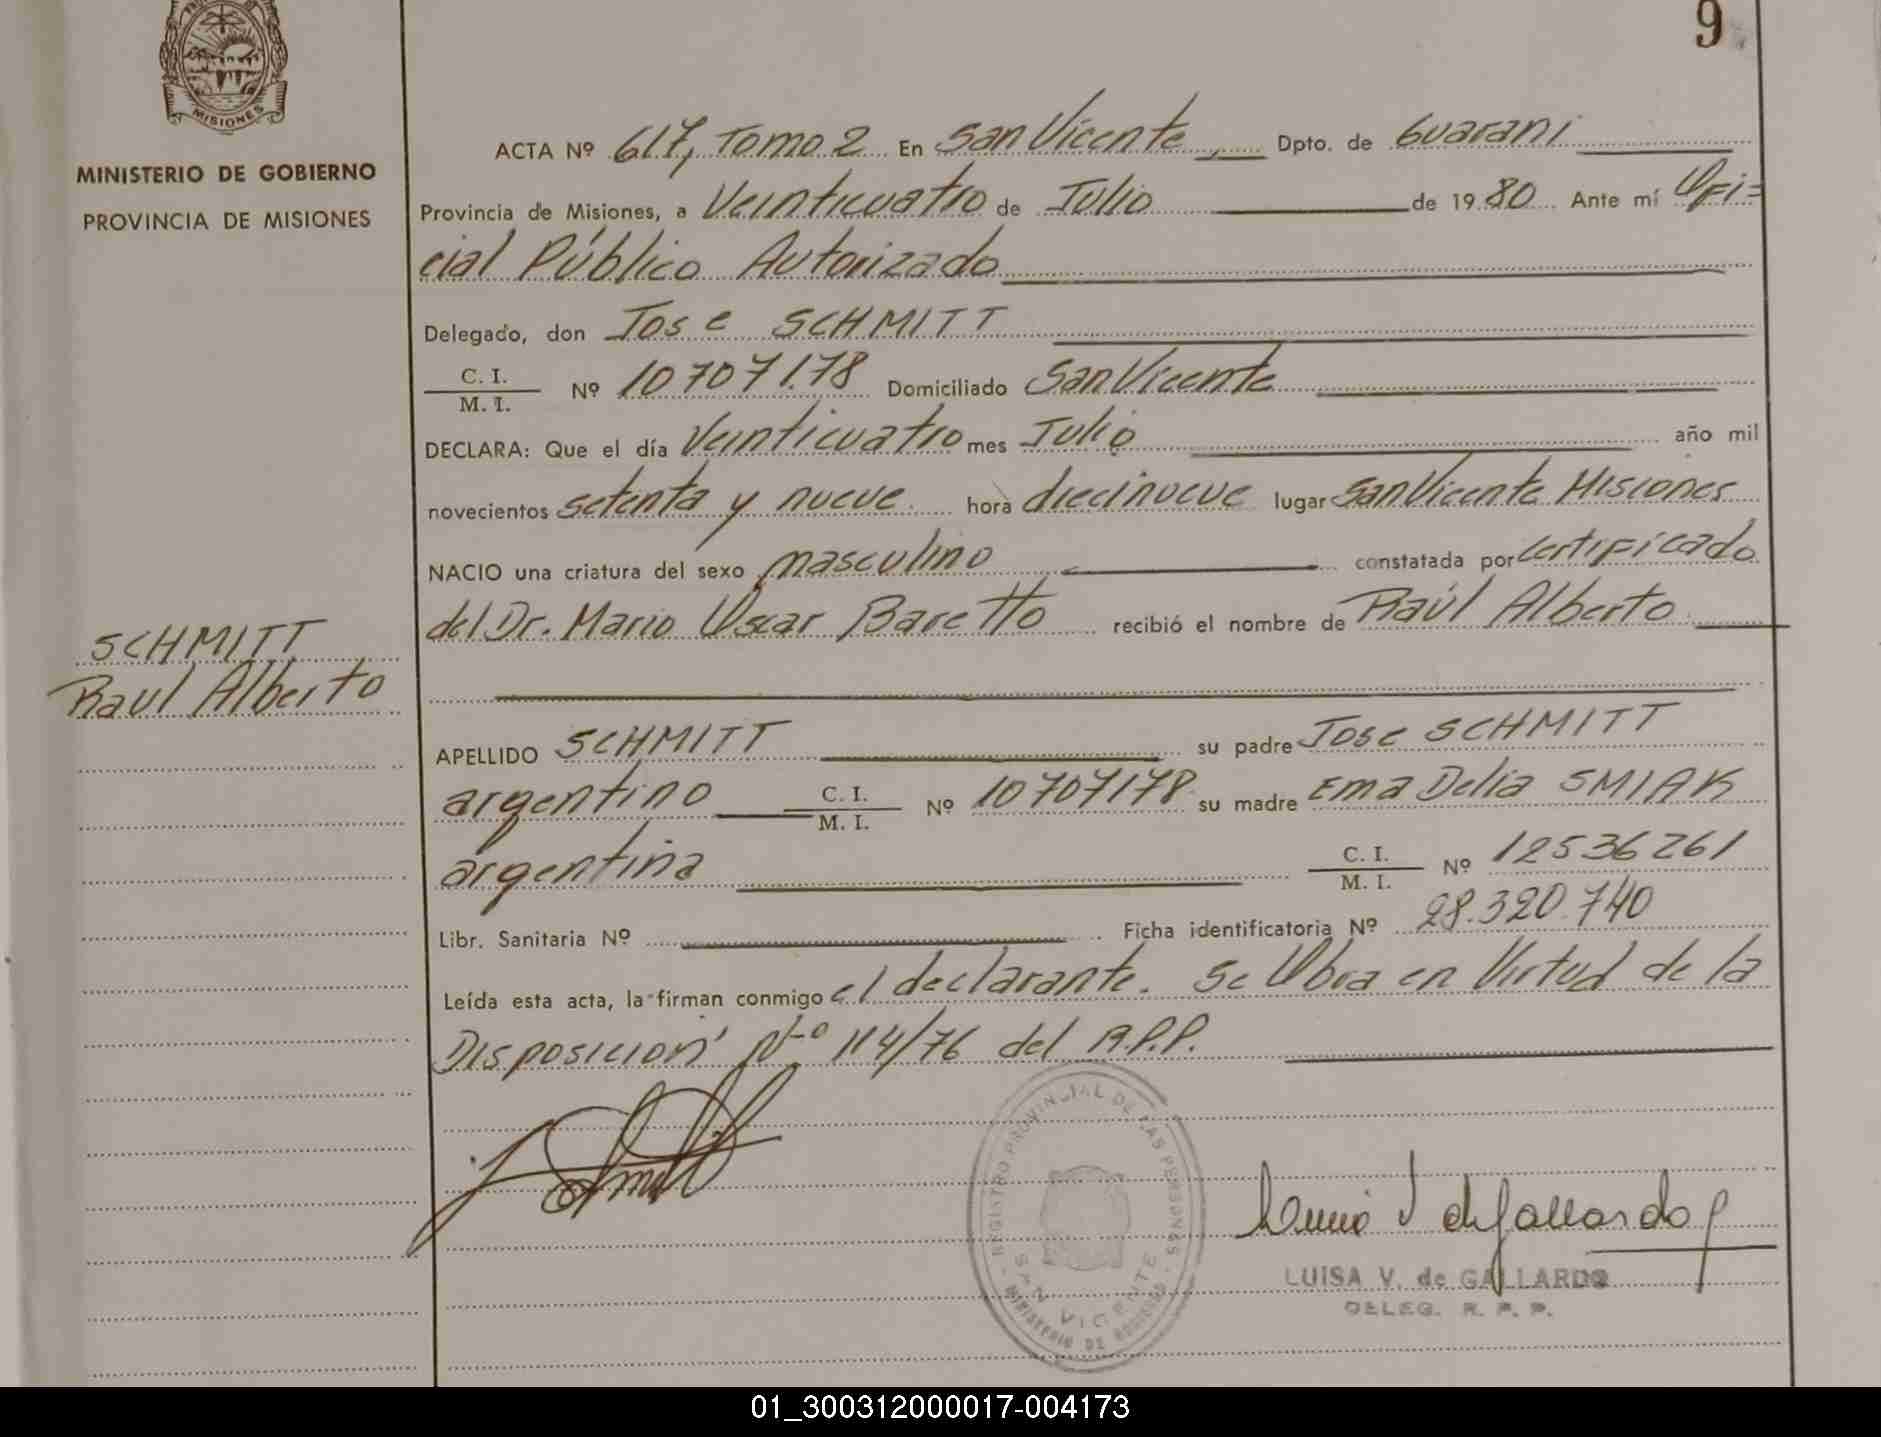 9
MISIONES
MINISTERIO DE GOBIERNO
PROVINCIA DE MISIONES
ACTA Nº 617, Tomo 2 En San Vicente, Dpto. de Guarani
Provincia de Misiones, a Veinticuatro de Julio de 1980 Ante mí Ofi=
cial Público Autorizado
Delegado, don Jose SCHMITT
C. I.
M. I. Nº 10707178 Domiciliado San Vicente
DECLARA: Que el día Veinticuatro mes Julio año mil
novecientos setenta y nueve hora diecinueve lugar San Vicente Misiones
NACIO una criatura del sexo masculino constatada por Certificado
del Dr. Mario Oscar Baretto recibió el nombre de Raúl Alberto
SCHMITT
Raul Alberto
APELLIDO SCHMITT su padre Jose SCHMITT
argentino C. I.
M. I. Nº 10707178 su madre Ema Delia SMIAK
argentina C. I.
M. I. Nº 12536261
Libr. Sanitaria Nº Ficha identificatoria Nº 28.320.740
Leída esta acta, la firman conmigo el declarante. Se Obra en Virtud de la
Disposición Nº 114/76 del R.P.P.
REGISTRO PROVINCIAL DE LAS PERSONAS
SAN VICENTE
MINISTERIO DE GOBIERNO
LUISA V. de GALLARDO
DELEG. R. P. P.
01_300312000017-004173